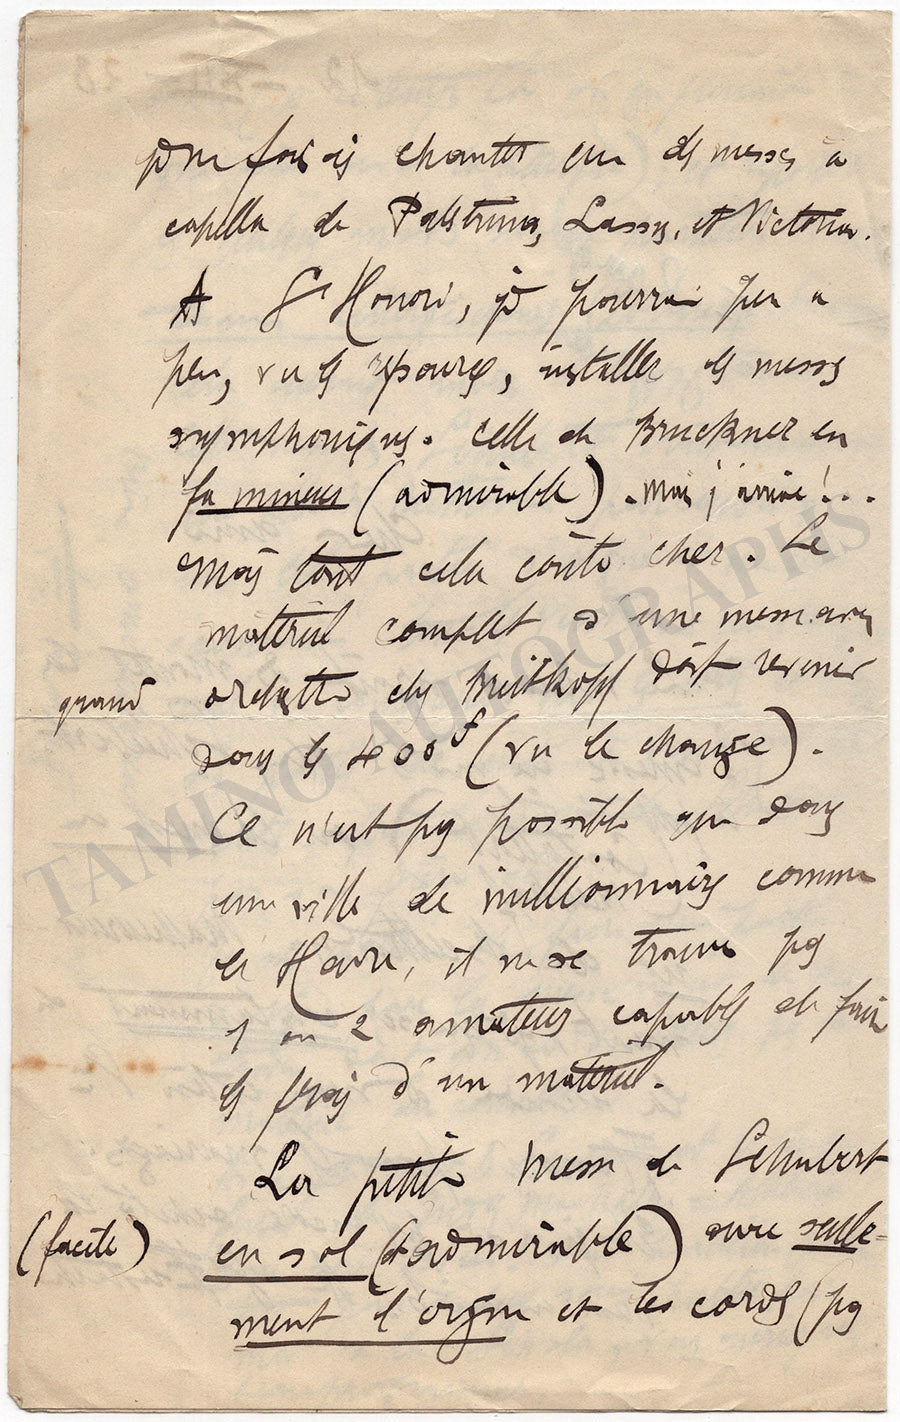 je ne fais chanter que des messes a
capella de Palestrina, Lassus, et Victoria.
A St Honoré, je pourrai peu a
peu, vu les ressources, installer les messes
symphoniques. Celle de Bruckner en
fa mineur (admirable). Mais j'arrive!...
Mais tout cela coûte cher. Le
matériel complet d'une messe avec
grand orchestre chez Breitkopf doit revenir
dans les 400f (vu le change).
Ce n'est pas possible que dans
une ville de millionnaires comme
le Havre, il ne se trouve pas
1 ou 2 amateurs capables de faire
les frais d'un matériel.
La petite Messe de Schubert
(facile) en sol (admirable) avec seule-
ment l'orgue et les cordes (pas
TAMINO AUTOGRAPHS